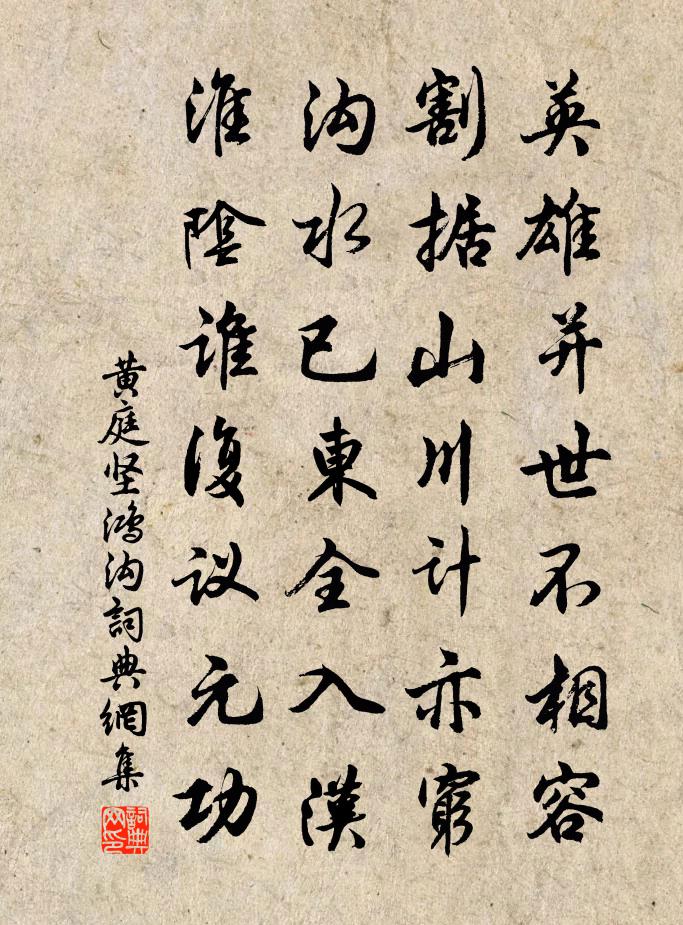 英雄并世不相容
割据山川计亦窮
沟水已東全入漢
淮陰谁復议元功
黄庭坚鴻沟詞典網集
詞典网印